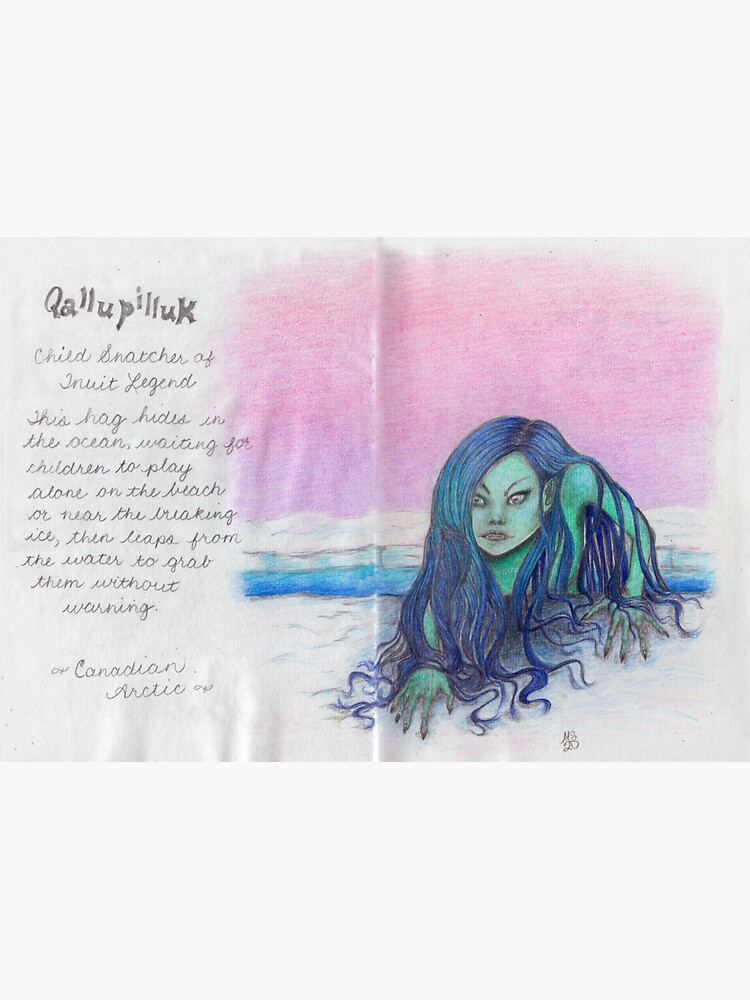 Qallupilluk
Child Snatcher of
Inuit Legend
This hag hides in
the ocean, waiting for
children to play
alone on the beach
or near the breaking
ice, then leaps from
the water to grab
them without
warning.
~ Canadian
Arctic ~
MS
20